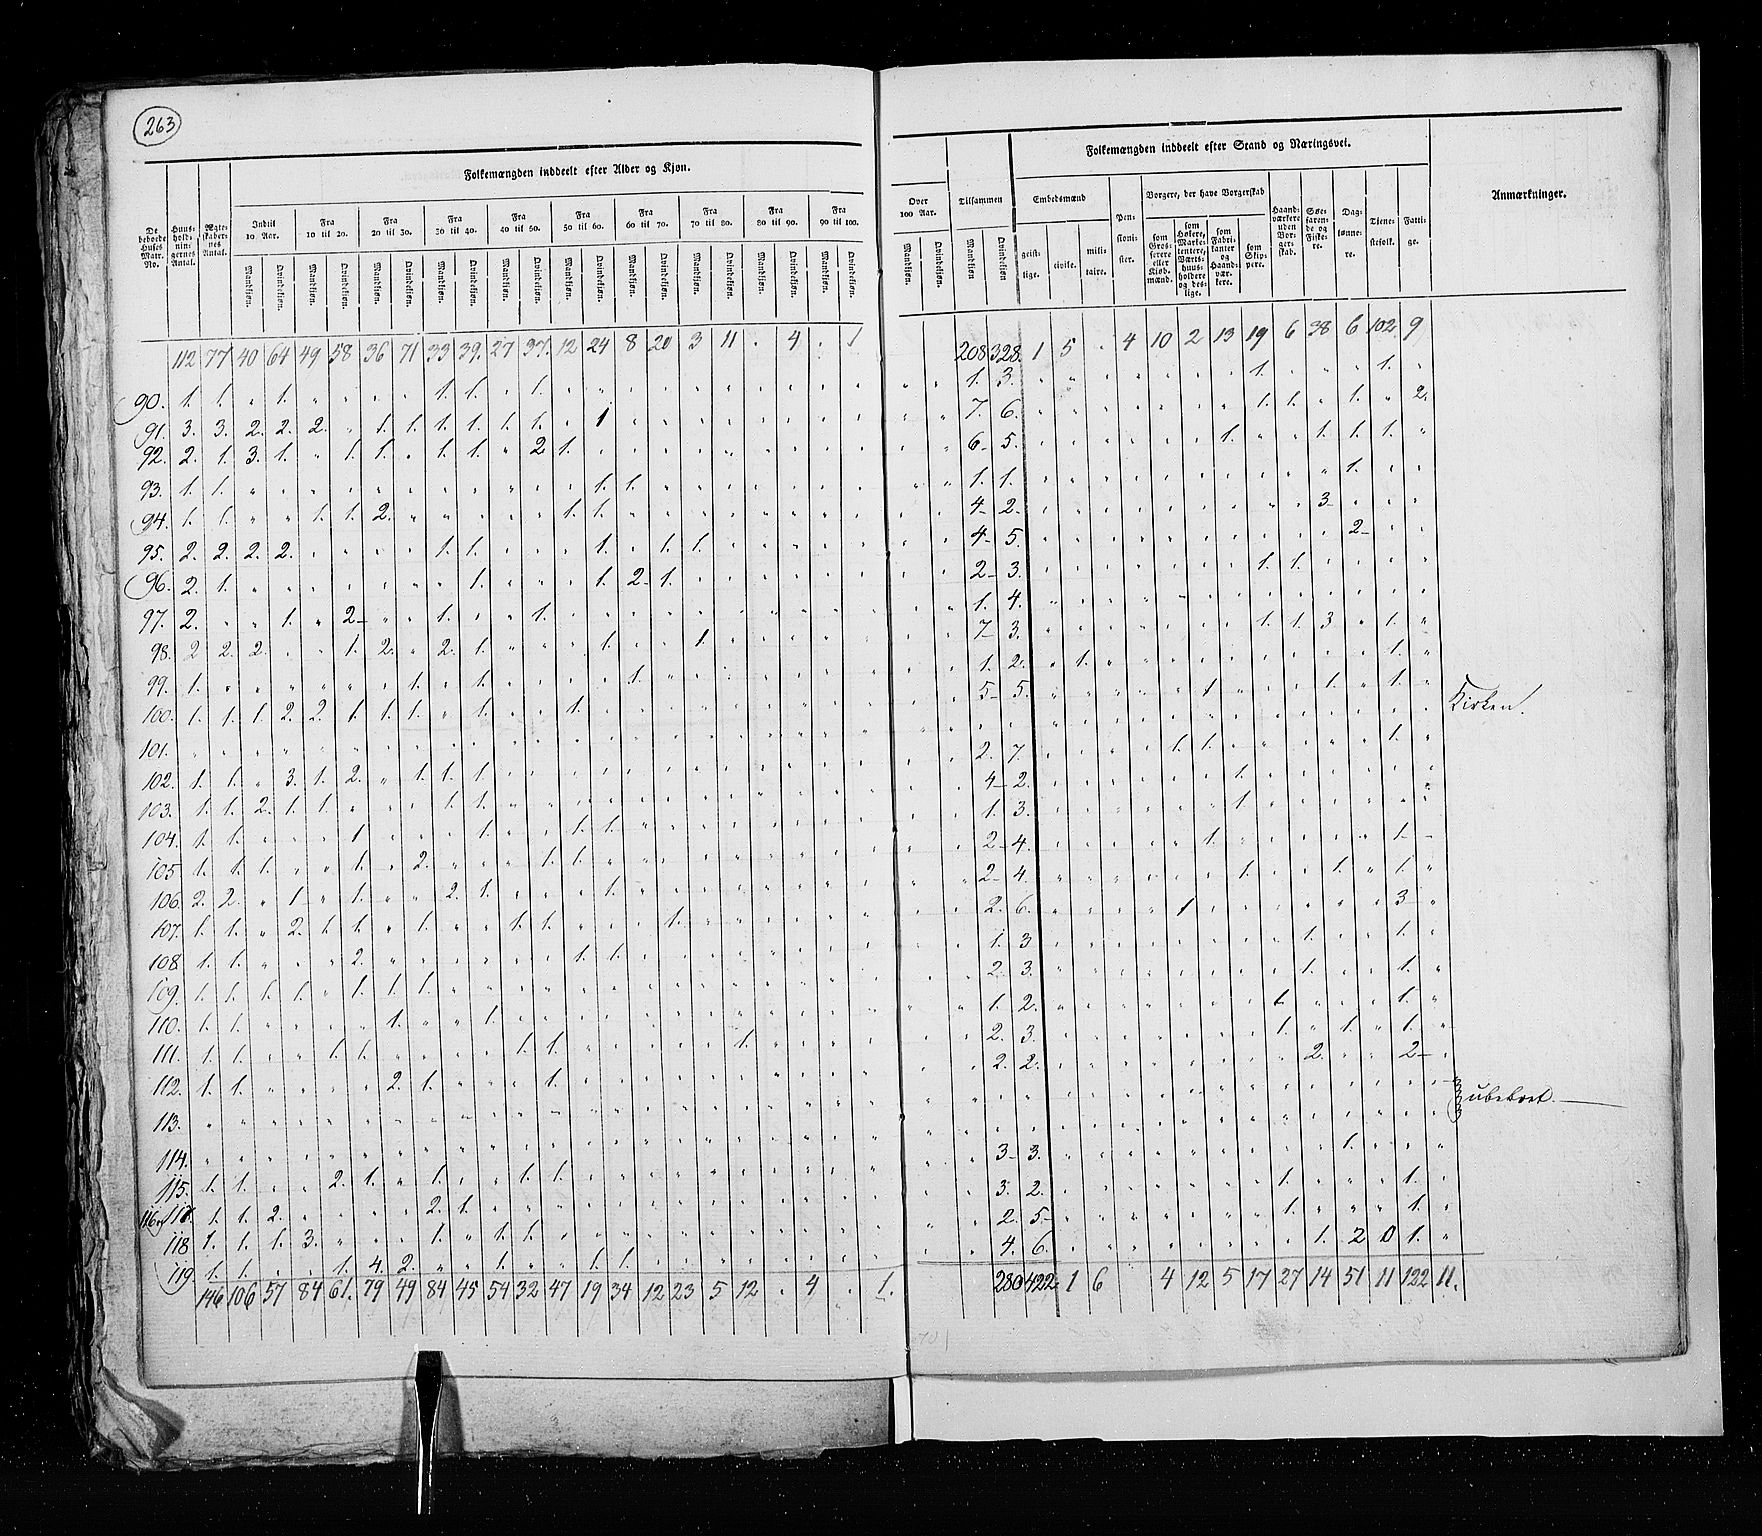 263
Folkemængden inddeelt efter Alder og Kjøn.
Folkemængden inddeelt efter Stand og Næringsvei.
De beboede Huses Matr. No.
Huus-hold-nin-gernes Antal.
Ægte-skaber-nes Antal.
Indtil 10 Aar.
Fra 10 til 20.
Fra 20 til 30.
Fra 30 til 40.
Fra 40 til 50.
Fra 50 til 60.
Fra 60 til 70.
Fra 70 til 80.
Fra 80 til 90.
Fra 90 til 100.
Over 100 Aar.
Tilsammen
Mandkjøn. Qvindekjøn.
Embedsmænd
geist-lige. civile. mili-taire.
Pen-sioni-ster.
Borgere, der have Borgerskab
som Gros-serere eller Kjøb-mænd.
som Høkere, Marke-tentere, Værts-huus-holdere og des-lige.
som Fabri-kanter og Haand-væ-kere.
som Skip-pere.
Haand-værkere uden Bor-ger-skab.
Søe-faren-de og Fiske-re.
Dag-lønne-re.
Tiene-stefolk.
Fatti-ge.
Anmærkninger.
112 77 40 64 49 58 36 71 33 39. 27 37. 12 24 8 20 3 11 . 4 . 1 208 328. 1 5 . 4 10 2 13 19 6 38 6 102 9
90. 1. 1. " 1. " " " " 1. 1. " 1. 1. 3. 1. 1.
91. 3. 3. 2. 2. 2. " 1. 1. 1. 1. 1. 1. " 1 7. 6. 1. 1. " 1. " 2.
92. 2. 1. 3. 1. " 1. 1. " 1. 1. " 2 1. 6- 5. 1. " " 1. 1. 1. "
93. 1. 1. 1. 1. 1. 1. 1.
94. 1. 1. " " 1. 1. 2. 1. 1. 4- 2. 3-
95. 2. 2. 2. 2. 1. 1. 1. " 1. 1. 4- 5. 2-
96. 2. 1. 1. 1. 2- 1. 2- 3. 1. 1.
97. 2. " " 1. " 2- " " 1. " " 1. 1. 4.
98. 2 2. 2. " " 1. 2. " 2. 1. 1. 1. 7- 3. 1. 1. 3 " 1. "
99. 1. 1. " 1. 1. 1. 2. " 1. 1. "
100. 1. 1. 1. 2. 2. 1. 1. 1. " 1. " " 1. 5- 5. 1 1. " 1. "
Kirken.
101.
102. 1. 1. " 3. 1. 2. " 1. 1. 1. 2. 7. 1. 1. 1.
103. 1. 1. 2. 1. 1. " " " 1. 1. 4- 2. 1.
104. 1. 1. 1 1. 1. 1. 1. 3. 1.
105 1. 1. 1. " " 1. " 2. 1. 1. 2- 4. 1. 1. -
106. 2. 2. " 1 " 1. " " 2. 1. 1. 2- 4. 1. 1. " 1. "
107. 1. 1. " 2. 1. 1. " 1. " " 1. 1. 1. 2. 6. 1 3- "
108 1. 1. 2. 1. 1. 1. 3 1. 1.
109. 1. 1. 1. 1. " 1. 1. 1. 2. 3. 1. 1. "
110. 1. 1. 1. " " 1. 1. 2. 1. 1. "
111. 1. 1. " " 1. 1. 1. 1. 1. 2. 3. 1. " 1. " 1. "
112. 1. 1. 2. 1. 1. 2. 2. 2. 2-
113.
ubeboet.
114.
115. 1. 1. " " 2. 1. " 1. " " 1. 1. 3- 3. 1.
116 og 117. 1. 1. 2. 2. 1. 3. 2. 1. 1.
118 1. 1. 1. 3. 1. " 1. 1. 2. 5- 1. 1.
119. 1. 1. 1. 4. 2. 1. 1. 1. 4. 6. 1. 2 0 1. "
146 106 57 84 61. 79 49 84 45 54 32 47 19 34 12 23 5 12 . 4 . 1. 280 422 1 6 4 12 5 17 27 14 51 11 122 11.